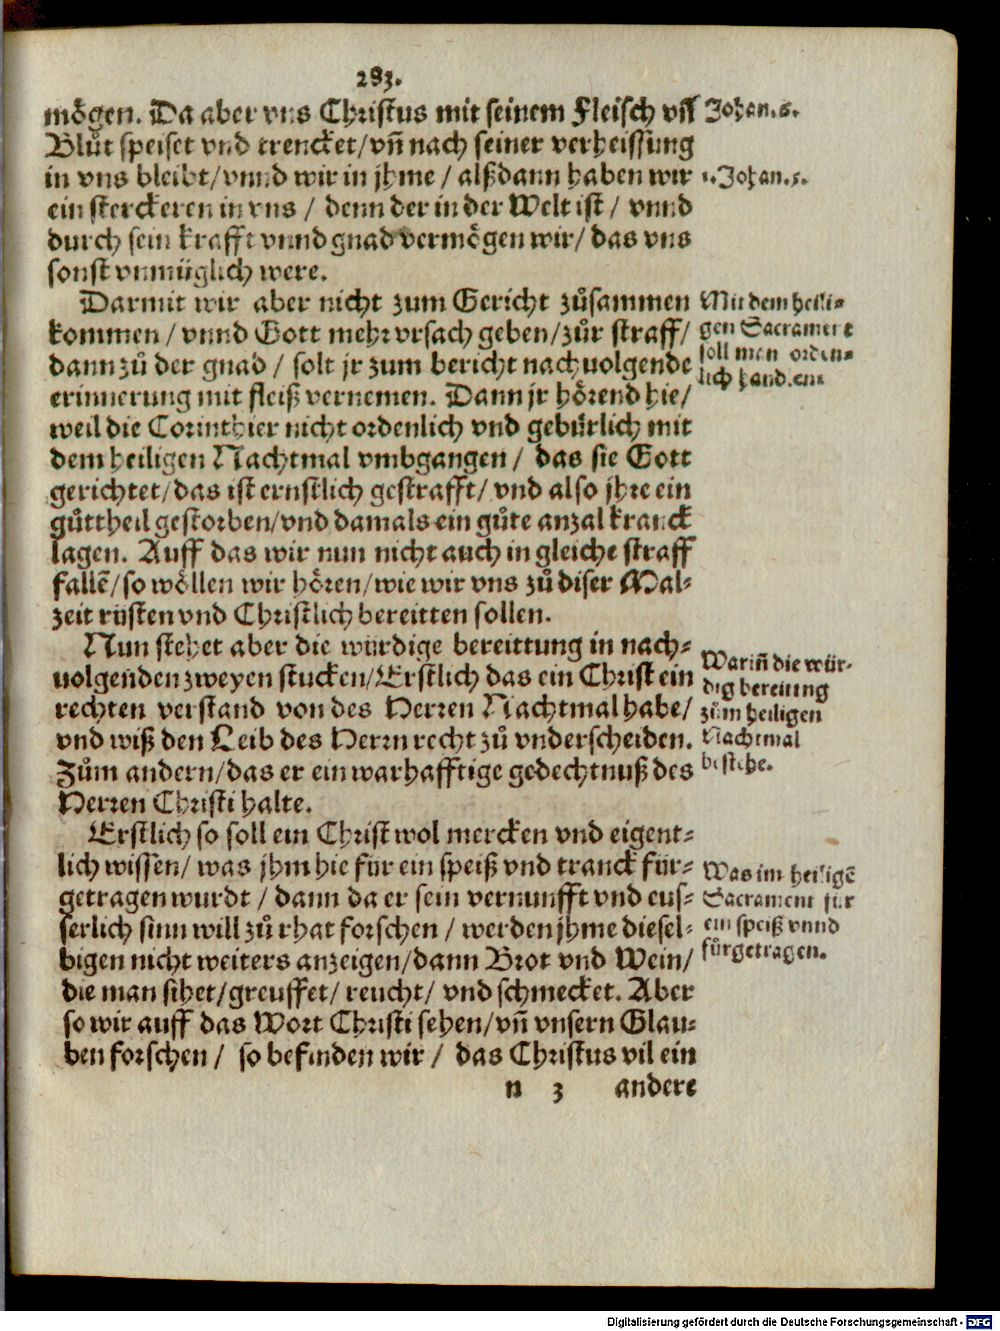 283.
mögen. Da aber vns Christus mit seinem Fleisch vñ
Blůt speiset vnd trencket/vñ nach seiner verheissung
in vns bleibt/vnnd wir in jhme / alßdann haben wir
ein sterckeren in vns / denn der in der Welt ist / vnnd
durch sein krafft vnnd gnad vermögen wir/ das vns
sonst vnmüglich were.
Darmit wir aber nicht zum Gericht zůsammen
kommen / vnnd Gott mehr vrsach geben/zůr straff/
dann zů der gnad / solt jr zum bericht nachuolgende
erinnerung mit fleiß vernemen. Dann jr hörend hie/
weil die Corinthier nicht ordenlich vnd gebürlich mit
dem heiligen Nachtmal vmbgangen / das sie Gott
gerichtet/das ist ernstlich gestrafft/vnd also jhre ein
gůttheil gestorben/vnd damals ein gůte anzal kranck
lagen. Auff das wir nun nicht auch in gleiche straff
fallē/so wöllen wir hören/wie wir vns zů diser Mal-
zeit rüsten vnd Christlich bereitten sollen.
Nun stehet aber die würdige bereittung in nach-
uolgenden zweyen stucken/Erstlich das ein Christ ein
rechten verstand von des Herren Nachtmal habe/
vnd wiß den Leib des Herrn recht zů vnderscheiden.
Zům andern/das er ein warhafftige gedechtnuß des
Herren Christi halte.
Erstlich so soll ein Christ wol mercken vnd eigent-
lich wissen/ was jhm hie für ein speiß vnd tranck für-
getragen wurdt / dann da er sein vernunfft vnd eus-
serlich sinn will zů rhat forschen / werden jhme diesel-
bigen nicht weiters anzeigen/dann Brot vnd Wein/
die man sihet/greuffet/ reucht/ vnd schmecket. Aber
so wir auff das Wort Christi sehen/vñ vnsern Glau-
ben forschen / so befinden wir / das Christus vil ein
n 3 andere
Johan.6.
1.Johan.5.
Mit dem heili-
gen Sacrament
soll man orden-
lich handlen
Wariñ die wür-
dig bereitung
zům heiligen
Nachtmal
bestehe.
Was im heiligē
Sacrament für
ein speiß vnnd
fürgetragen.
Digitalisierung gefördert durch die Deutsche Forschungsgemeinschaft - DFG